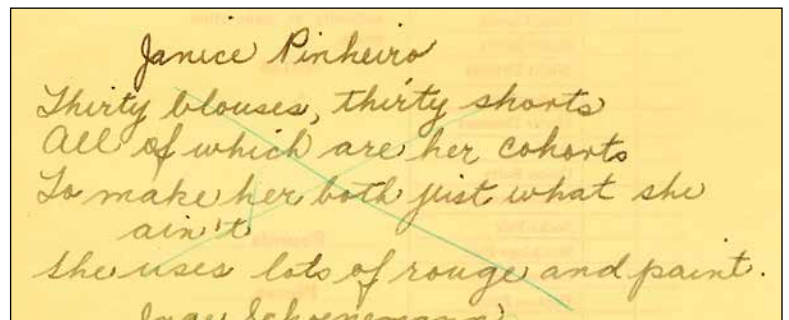 Janice Pinheiro
Thirty blouses, thirty shorts
All of which are her cohorts
To make her both just what she
ain't
She uses lots of rouge and paint.
Schoenemann